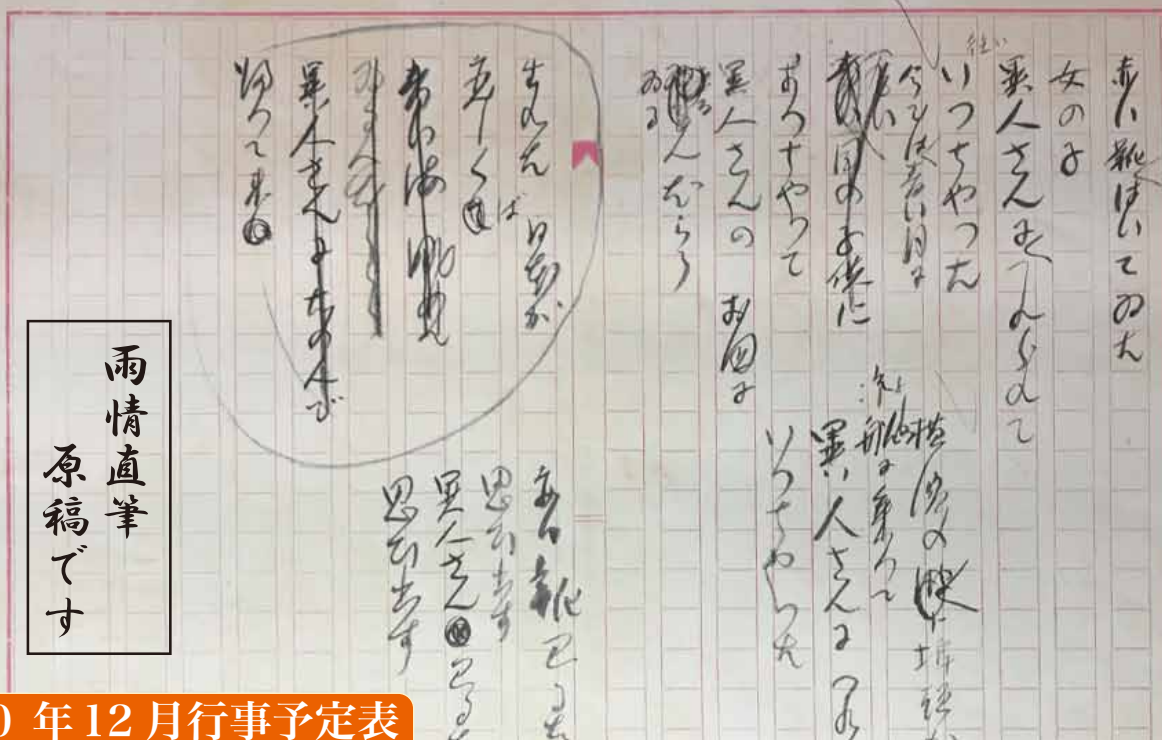 赤い靴はいてゐた
女の子
異人さんにつれられて
いつちやつた
今では青い目に
国の子供に
なつちやつて
異人さんの お国に
んだらう
ゐる
横浜の 埠頭か
船に乗つて
異人さんに つれ
いつちやつた
生れた 日本が
恋しく ば
青い海眺め
異人さんにたのんで
帰つて来
赤い靴見るた
思ひ出す
異人さん 見る
思ひ出す
雨情直筆
原稿です
年12月行事予定表